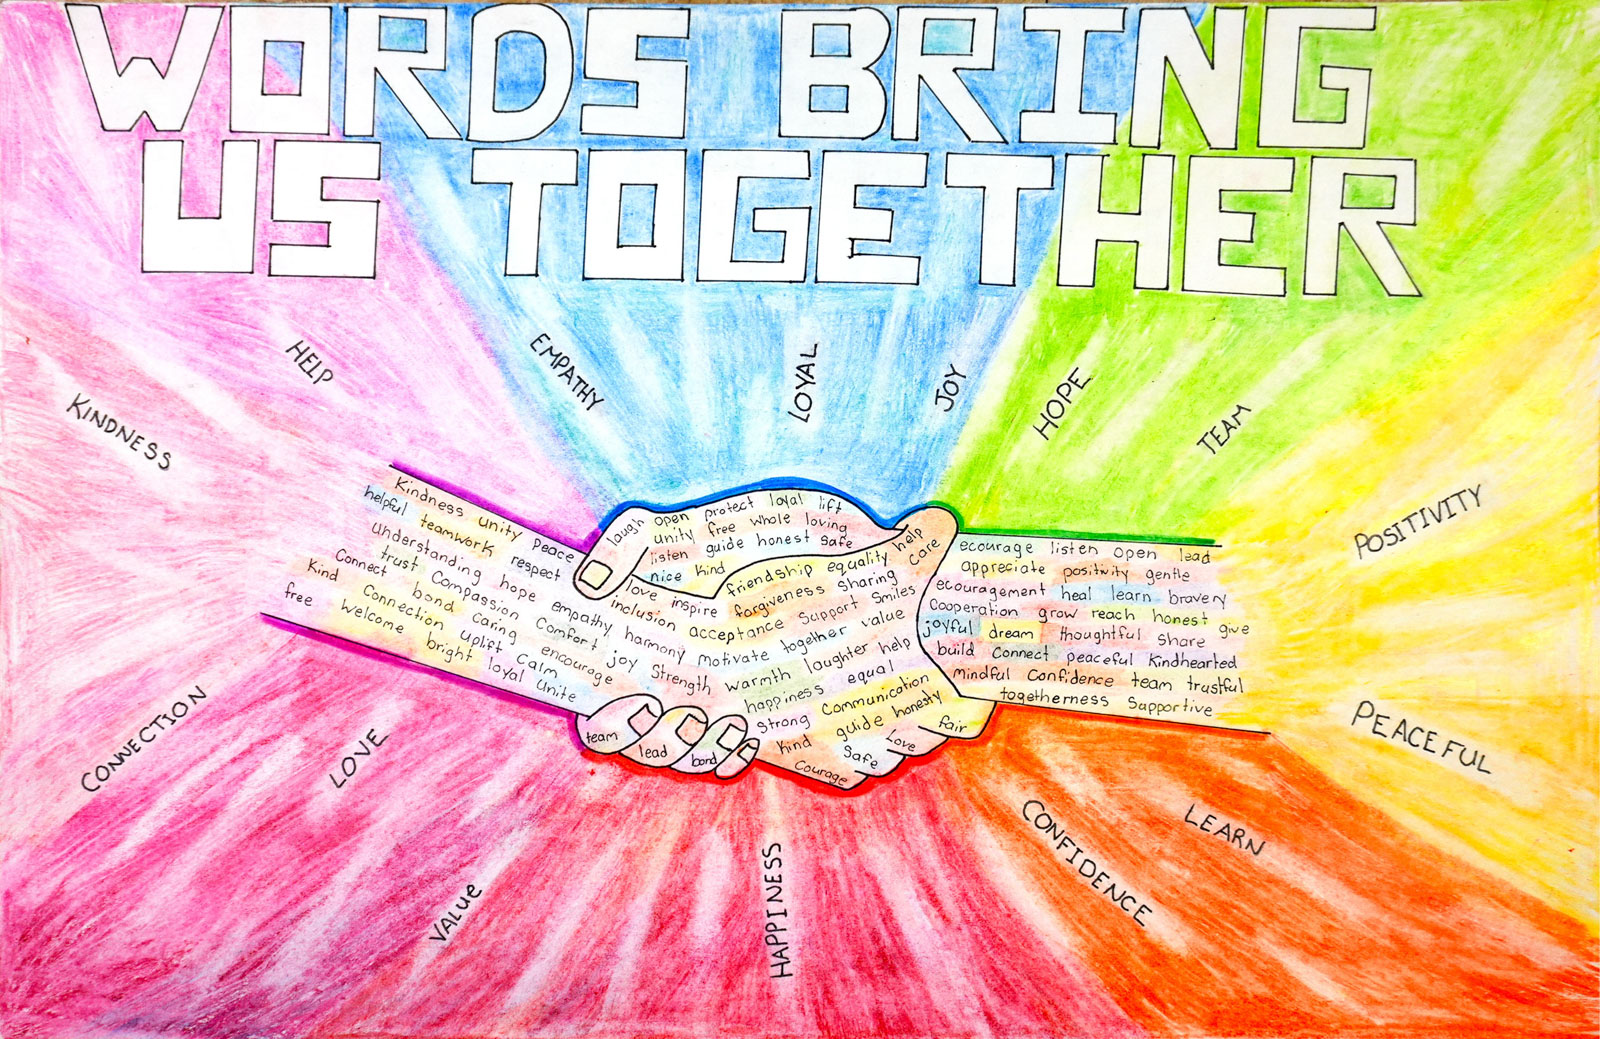 WORDS BRING
US TOGETHER
HELP
EMPATHY
LOYAL
JOY
HOPE
TEAM
KINDNESS
POSITIVITY
CONNECTION
LOVE
PEACEFUL
LEARN
CONFIDENCE
VALUE
HAPPINESS
Kindness unity peace
helpful teamwork respect
understanding hope empathy harmony motivate together value
trust Compassion Comfort joy Strength warmth laughter help
Connect bond caring encourage happiness equal
Kind Connection uplift Calm strong Communication
free welcome bright loyal unite
laugh open protect loyal lift
unity free whole loving
listen guide honest safe
nice kind
friendship equality help
love inspire forgiveness sharing care
inclusion acceptance Support Smiles
kind guide honesty
Safe Love fair
Courage
team
lead
bond
ecourage listen open lead
appreciate positivity gentle
ecouragement heal learn bravery
Cooperation grow reach honest give
joyful dream thoughtful share
build Connect peaceful Kindhearted
mindful Confidence team trustful
togetherness Supportive